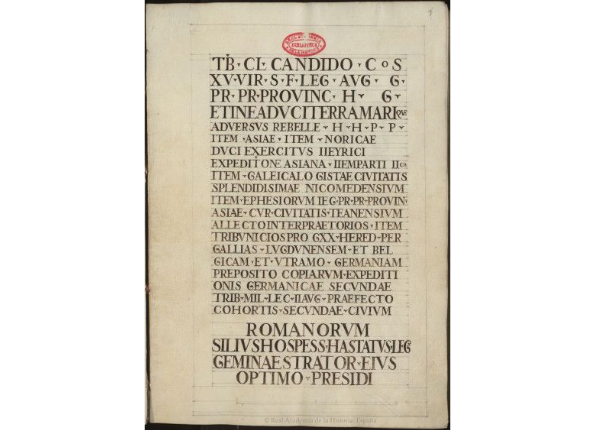 TB · CL CANDIDO · COS
XV · VIR · S · F · LEG · AVG · G ·
PR · PR · PROVINC · H · G ·
ET INEA DVCI TERRA MARIQVE
ADVERSVS REBELLE · H · H · P · P ·
ITEM · ASIAE · ITEM · NORICAE
DVCI EXERCITVS IIEYRICI
EXPEDITONE ASIANA · IIEMPARTI II
ITEM · GALEICALO GISTAE CIVITATIS
SPLENDIDISIMAE NICOMEDENSIVM
ITEM · EPHESIORVM IEG · PR · PR · PROVIN
ASIAE · CVR · CIVITATIS · TEANENSIVM
ALLECTO INTERPRAETORIOS · ITEM
TRIBVNICIOS PRO GXX · HERED · PER
GALLIAS · LVGDVNENSEM · ET BEL
GICAM · ET · VTRAMO · GERMANIAM
PREPOSITO COPIARVM · EXPEDITI
ONIS GERMANICAE SECVNDAE
TRIB · MIL · LEC · II AVG · PRAEFECTO
COHORTIS · SECVNDAE · CIVIVM
ROMANORVM
SILIVS HOSPESS · HASTATVS · LEG
GEMINAE STRATOR · EIVS
OPTIMO · PRESIDI
© Real Academia de la Historia. España